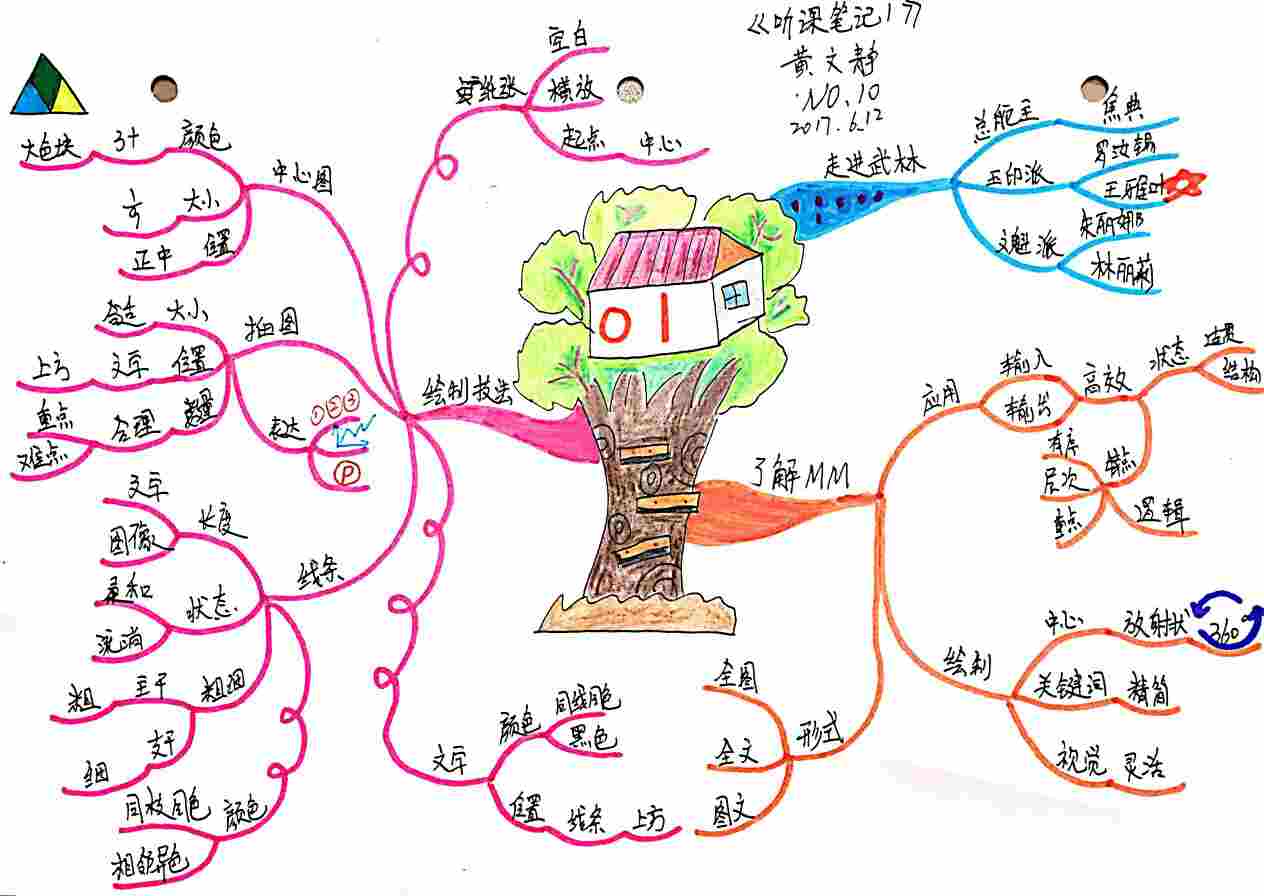 《听课笔记1》
黄文静
NO.10
2017.6.12
01
走进武林
总舵主
焦典
王印派
王雅叶
文魁派
朱丽娜
林丽莉
了解MM
应用
输入
输出
高效
状态
结构
有序
层次
重点
逻辑
绘制
中心
放射状
360°
关键词
精简
视觉
灵活
形式
全图
全文
图文
绘制技法
纸张
空白
横放
起点
中心
中心图
颜色
3+
大色块
大小
正中
位置
插图
大小
合适
位置
文字
上方
数量
合理
重点
难点
表达
①②③
P
线条
长度
文字
图像
状态
柔和
流畅
粗细
主干
粗
支干
细
颜色
同枝同色
相邻异色
文字
颜色
同线同色
黑色
位置
线条
上方